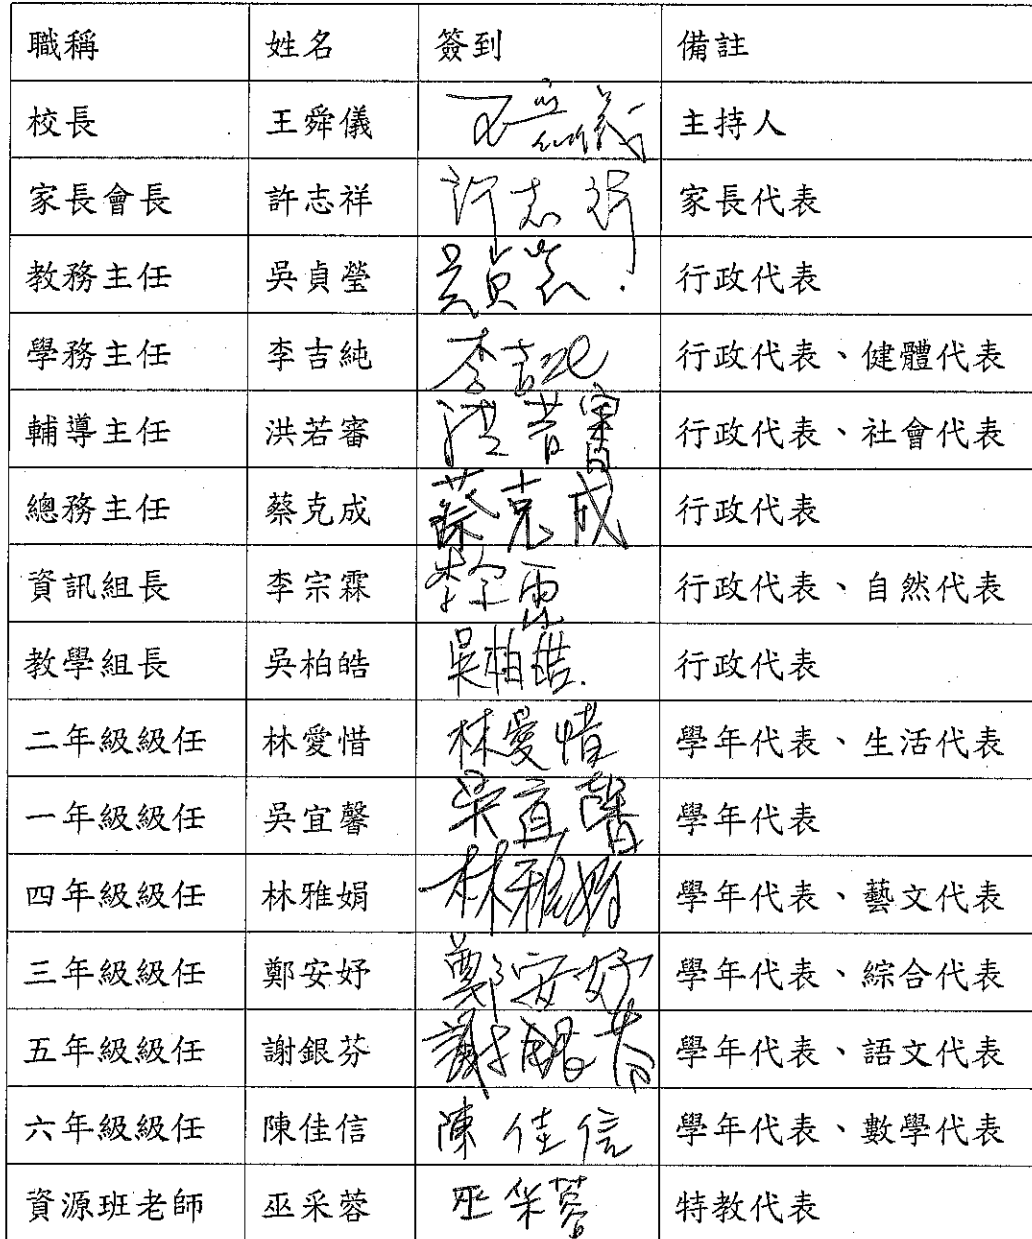 職稱 姓名 簽到 備註
校長 王舜儀 王舜儀 主持人
家長會長 許志祥 許志祥 家長代表
教務主任 吳貞瑩 吳貞瑩 行政代表
學務主任 李吉純 李吉純 行政代表、健體代表
輔導主任 洪若審 洪若審 行政代表、社會代表
總務主任 蔡克成 蔡克成 行政代表
資訊組長 李宗霖 李宗霖 行政代表、自然代表
教學組長 吳柏皓 吳柏皓 行政代表
二年級級任 林愛惜 林愛惜 學年代表、生活代表
一年級級任 吳宜馨 吳宜馨 學年代表
四年級級任 林雅娟 林雅娟 學年代表、藝文代表
三年級級任 鄭安妤 鄭安妤 學年代表、綜合代表
五年級級任 謝銀芬 謝銀芬 學年代表、語文代表
六年級級任 陳佳信 陳佳信 學年代表、數學代表
資源班老師 巫采蓉 巫采蓉 特教代表